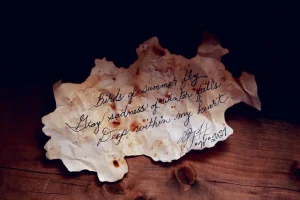 Birds of summer fly
Gray sadness of winter fills
Deep within my heart
2021